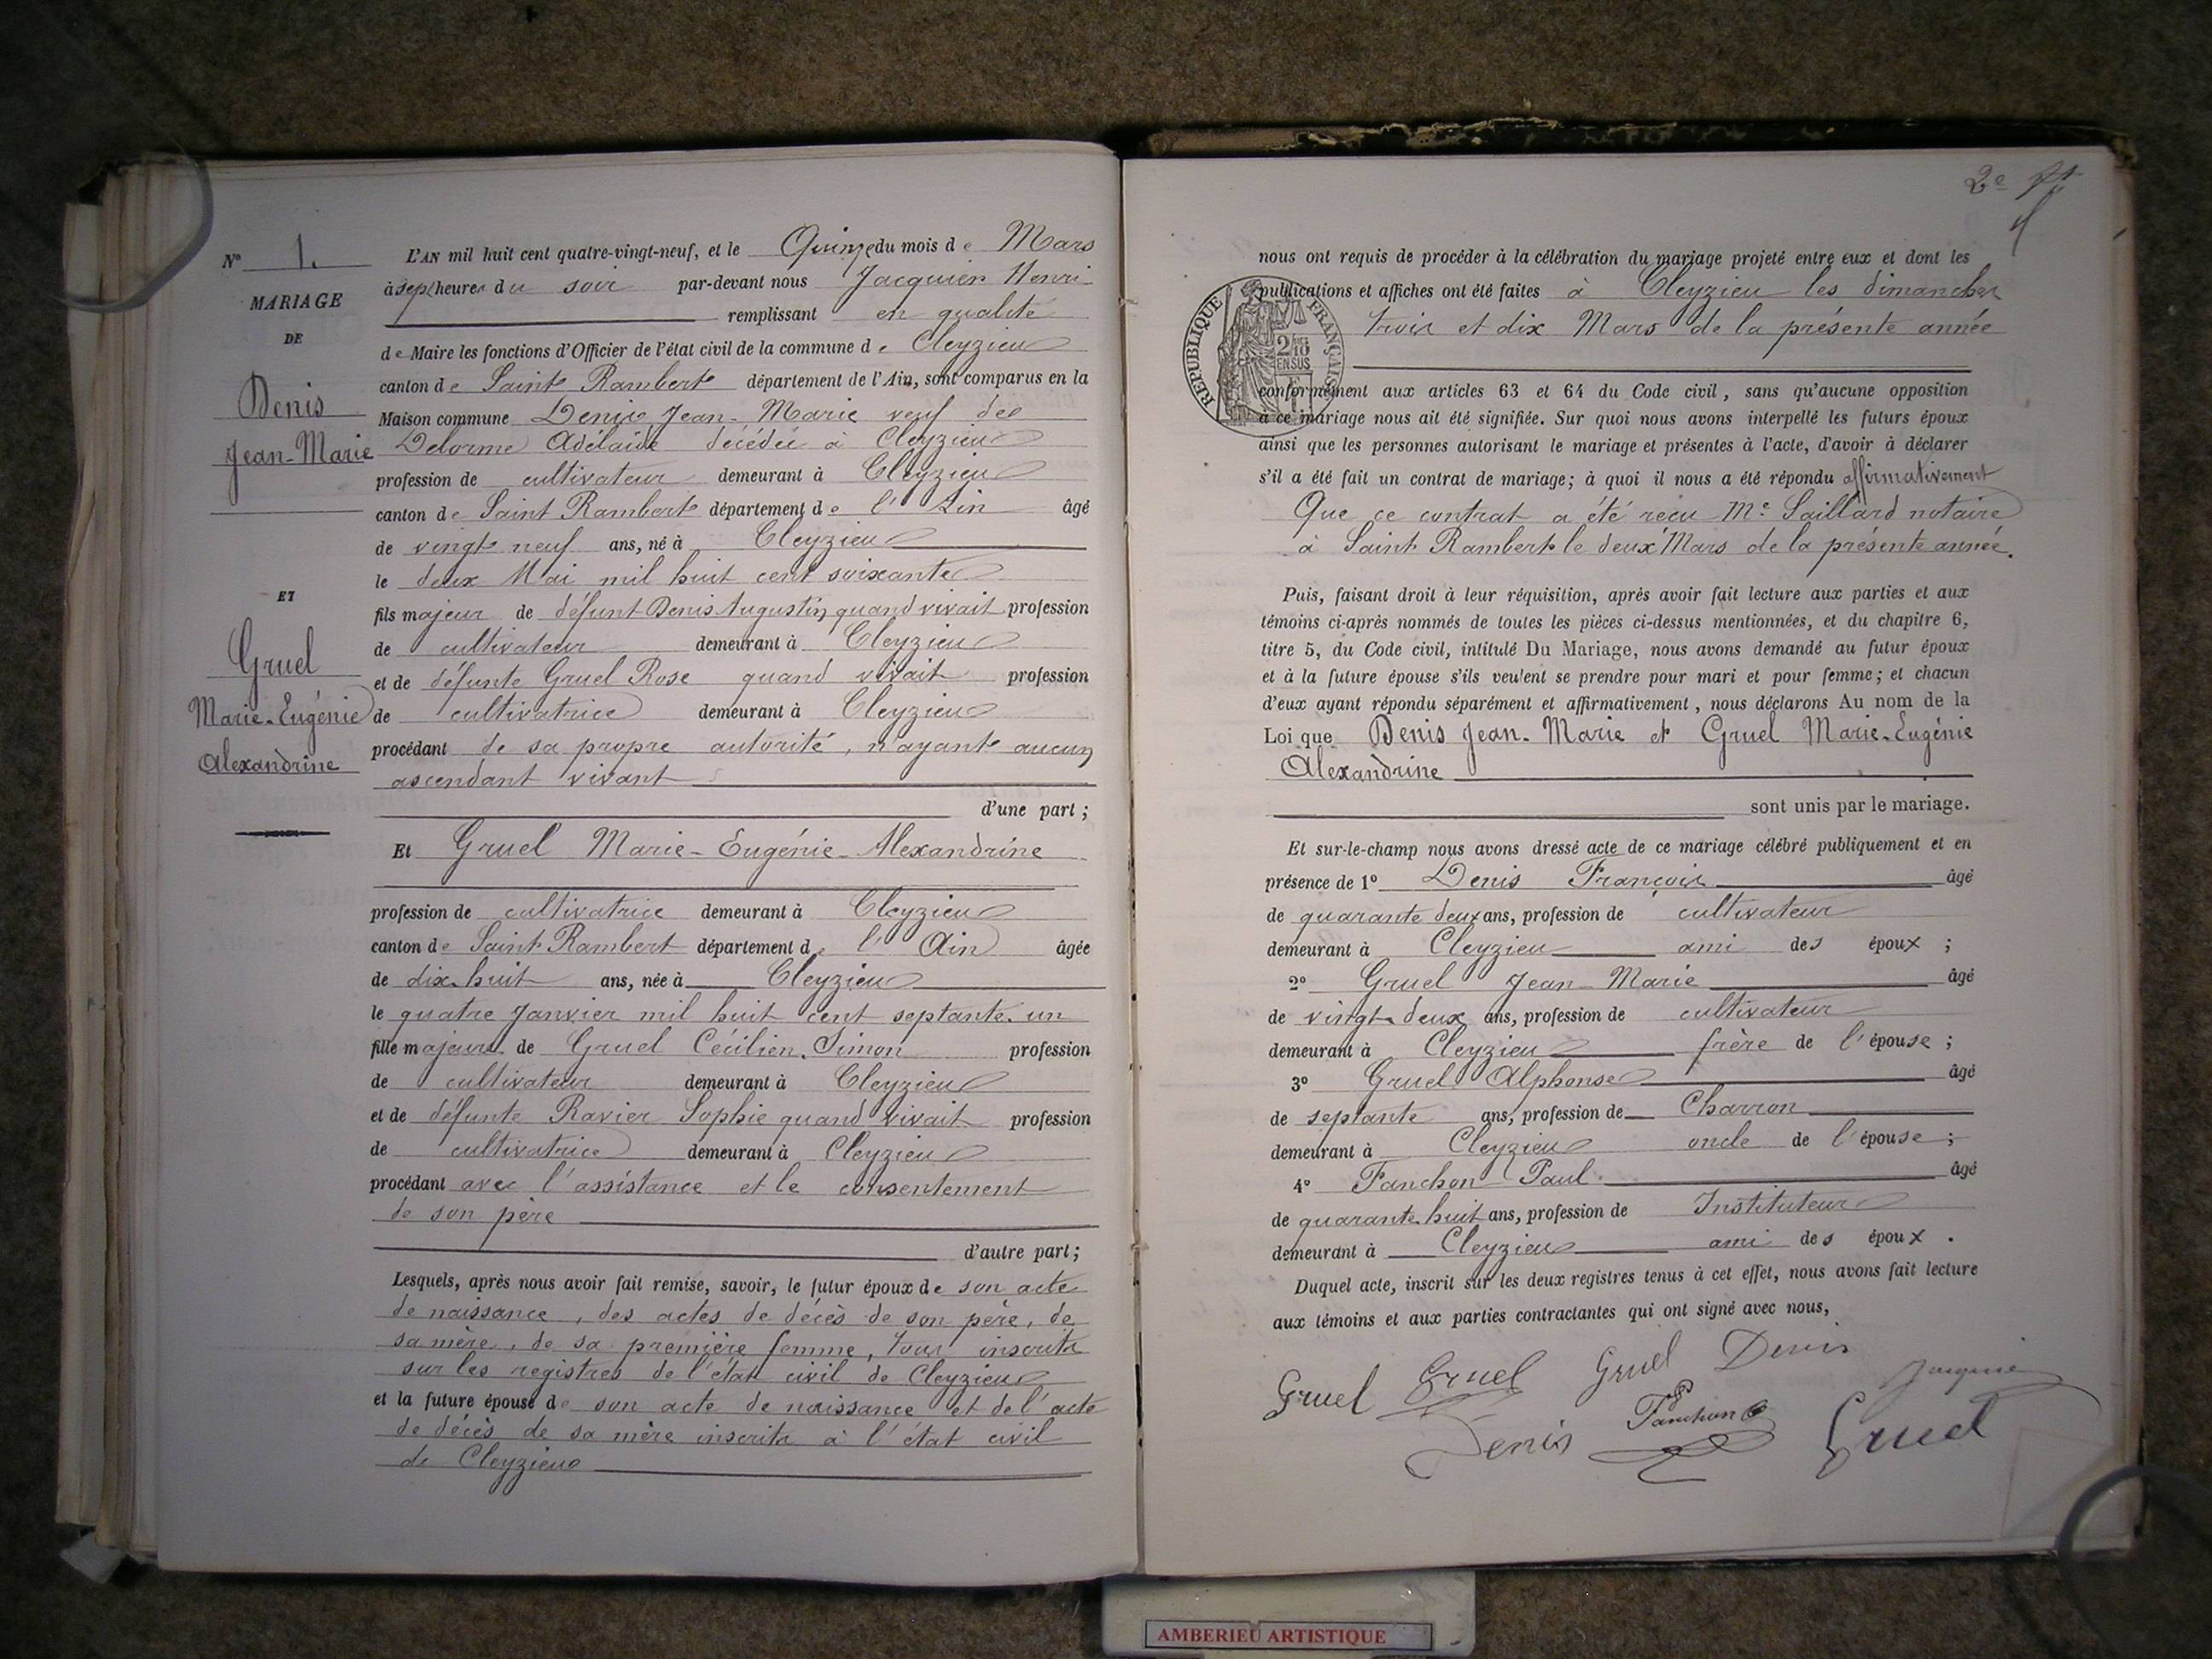 N° 1.
MARIAGE
DE
Denis
Jean-Marie
ET
Gruel
Marie-Eugénie
Alexandrine
L'AN mil huit cent quatre-vingt-neuf, et le Quinze du mois de Mars
à sept heures du soir par-devant nous Jacquier Henri
remplissant en qualité
de Maire les fonctions d'Officier de l'état civil de la commune de Cleyzieu
canton de Saint Rambert département de l'Ain, sont comparus en la
Maison commune Denis Jean-Marie veuf de
Delorme Adélaïde décédée à Cleyzieu
profession de cultivateur demeurant à Cleyzieu
canton de Saint Rambert département de l'Ain âgé
de vingt neuf ans, né à Cleyzieu
le deux Mai mil huit cent soixante
fils majeur de défunt Denis Augustin quand vivait profession
de cultivateur demeurant à Cleyzieu
et de défunte Gruel Rose quand vivait profession
de cultivatrice demeurant à Cleyzieu
procédant de sa propre autorité, n'ayant aucun
ascendant vivant
d'une part ;
Et Gruel Marie-Eugénie-Alexandrine
profession de cultivatrice demeurant à Cleyzieu
canton de Saint Rambert département de l'Ain âgée
de dix-huit ans, née à Cleyzieu
le quatre Janvier mil huit cent septante-un
fille majeure de Gruel Cécilien-Simon profession
de cultivateur demeurant à Cleyzieu
et de défunte Ravier Sophie quand vivait profession
de cultivatrice demeurant à Cleyzieu
procédant avec l'assistance et le consentement
de son père
d'autre part ;
Lesquels, après nous avoir fait remise, savoir, le futur époux de son acte
de naissance, des actes de décès de son père, de
sa mère, de sa première femme, tous inscrits
sur les registres de l'état civil de Cleyzieu
et la future épouse de son acte de naissance et de l'acte
de décès de sa mère inscrits à l'état civil
de Cleyzieu
2e
nous ont requis de procéder à la célébration du mariage projeté entre eux et dont les
publications et affiches ont été faites à Cleyzieu les dimanches
trois et dix Mars de la présente année
RÉPUBLIQUE FRANÇAISE
2/10 EN SUS
conformément aux articles 63 et 64 du Code civil, sans qu'aucune opposition
à ce mariage nous ait été signifiée. Sur quoi nous avons interpellé les futurs époux
ainsi que les personnes autorisant le mariage et présentes à l'acte, d'avoir à déclarer
s'il a été fait un contrat de mariage; à quoi il nous a été répondu affirmativement
Que ce contrat a été reçu Me Saillard notaire
à Saint Rambert le deux Mars de la présente année.
Puis, faisant droit à leur réquisition, après avoir fait lecture aux parties et aux
témoins ci-après nommés de toutes les pièces ci-dessus mentionnées, et du chapitre 6,
titre 5, du Code civil, intitulé Du Mariage, nous avons demandé au futur époux
et à la future épouse s'ils veulent se prendre pour mari et pour femme; et chacun
d'eux ayant répondu séparément et affirmativement, nous déclarons Au nom de la
Loi que Denis Jean-Marie et Gruel Marie-Eugénie
Alexandrine
sont unis par le mariage.
Et sur-le-champ nous avons dressé acte de ce mariage célébré publiquement et en
présence de 1° Denis François âgé
de quarante deux ans, profession de cultivateur
demeurant à Cleyzieu ami des époux ;
2° Gruel Jean-Marie âgé
de vingt-deux ans, profession de cultivateur
demeurant à Cleyzieu frère de l'épouse ;
3° Gruel Alphonse âgé
de septante ans, profession de Charron
demeurant à Cleyzieu oncle de l'épouse ;
4° Panchon Paul âgé
de quarante-huit ans, profession de Instituteur
demeurant à Cleyzieu ami des époux .
Duquel acte, inscrit sur les deux registres tenus à cet effet, nous avons fait lecture
aux témoins et aux parties contractantes qui ont signé avec nous,
Gruel Gruel Gruel Denis Jacquier
Denis Panchon Gruel
AMBERIEU ARTISTIQUE